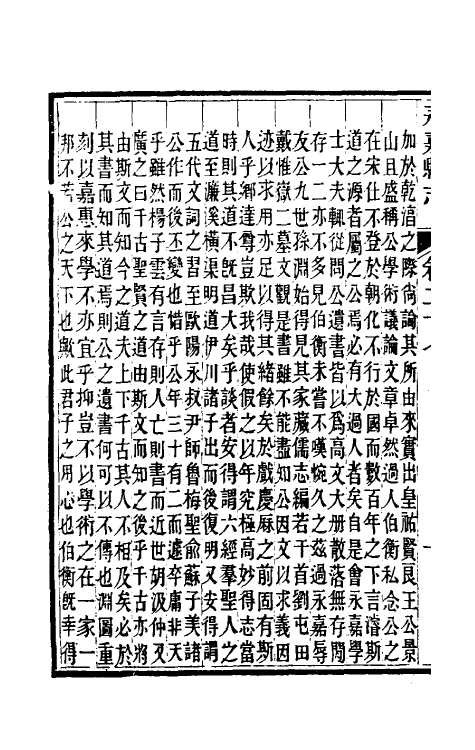 永嘉縣志
卷二十八
加於乾淳之際尙論其所由來實出皇祐賢良王公景
山且盛稱公學術議論文章卓然過人伯衡私念公之
在宋仕不登於朝化不行於國而數百年之下言濳斯
道之源者屬之公焉必有大過人者矣自是會永嘉學
士大夫輒從問公遺書皆以爲高文大册散落無存閒
存一二亦不多見伯衡未嘗不嘆惋久之茲過永嘉辱
友公九世孫淵始得見其家藏儒志編若干首劉屯田
戴惟嶽二墓文觀是書雖不能盡知公因文以求義因
迹以求用亦足以得其緒餘矣於戲慶曆之前固有斯
人乎鄉達尊豈欺我哉使假之以年究極高妙得志當
時則其道不旣昌大矣乎談者安得謂六經羣聖人之
道至濂溪橫渠明道伊川諸子出而後復明又安得謂
五代文詞之習至歐陽永叔尹師魯梅聖俞蘇子美諸
公作而後丕變也惜乎公年三十有二而遽卒庸非天
乎雖然楊子雲有言存則人亡則書而近世胡汲仲又
廣之曰千古聖賢之道由斯文而知之後乎千古亦將
由斯文而知今之道夫上下千古其人不相及矣必於
其書而知其道焉則公之遺書何可以不傳也淵圖重
刻以嘉惠來學不亦宜乎抑豈不以學術之在一家一
邦不若公之天下也歟此君子之用心也伯衡旣幸得